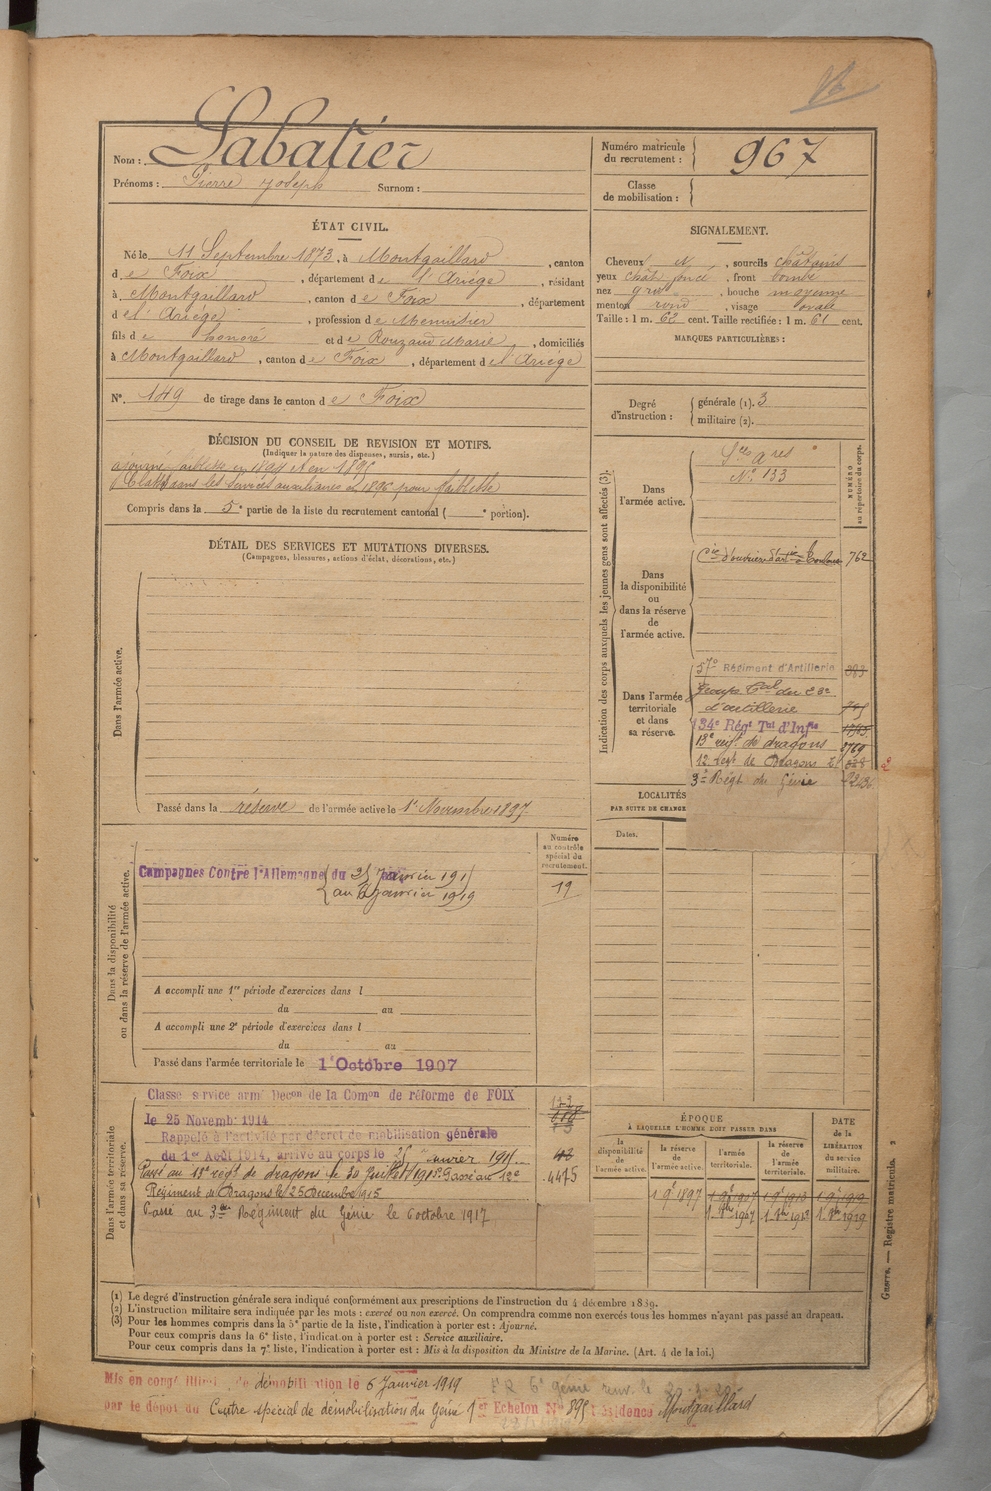 Nom : Sabatier
Prénoms : Pierre Joseph Surnom :
Numéro matricule du recrutement : 967
Classe de mobilisation :
ÉTAT CIVIL.
Né le 11 Septembre 1873, à Montgaillard, canton
d e Foix, département d e l'Ariège, résidant
à Montgaillard, canton d e Foix, département
d el'Ariège, profession d e Menuisier
fils d e honoré et d e Rouzaud Marie, domiciliés
à Montgaillard, canton d e Foix, département d el'Ariège
N° 149 de tirage dans le canton d e Foix
SIGNALEMENT.
Cheveux, sourcils châtains
yeux chât foncé, front bombé
nez gros, bouche moyenne
menton rond, visage ovale
Taille : 1 m. 62 cent. Taille rectifiée : 1 m. 61 cent.
MARQUES PARTICULIÈRES :
Degré d'instruction : générale (1). 3
militaire (2).
DÉCISION DU CONSEIL DE REVISION ET MOTIFS.
(Indiquer la nature des dispenses, sursis, etc.)
ajourné faiblesse en 1894 et en 1895
Classé dans les services auxiliaires en 1896 pour faiblesse
Compris dans la 5e partie de la liste du recrutement cantonal ( e portion).
DÉTAIL DES SERVICES ET MUTATIONS DIVERSES.
(Campagnes, blessures, actions d'éclat, décorations, etc.)
Dans l'armée active.
Passé dans la réserve de l'armée active le 1er Novembre 1897
Indication des corps auxquels les jeunes gens sont affectés (3).
NUMÉRO au répertoire du corps.
Dans l'armée active.
Sces Ares
N° 133
Dans la disponibilité ou dans la réserve de l'armée active.
Cie d'ouvriers d'artie Toulouse 762
Dans l'armée territoriale et dans sa réserve.
57e Régiment d'Artillerie 383
Groupe
d'artillerie
134e Régt Tal d'Infie
13e régt de dragons
12 regt de Dragons
3e Régt du Génie
LOCALITÉS
PAR SUITE DE CHANGE
Dates.
Dans la disponibilité ou dans la réserve de l'armée active.
Numéro au contrôle spécial du recrutement.
19
Campagnes Contre l'Allemagne du 25 Janvier 1915
au 6 janvier 1919
A accompli une 1re période d'exercices dans l
du au
A accompli une 2e période d'exercices dans l
du au
Passé dans l'armée territoriale le 1er Octobre 1907
Dans l'armée territoriale et dans sa réserve.
Classé service armé Décon de la Comon de réforme de FOIX
le 25 Novembre 1914
Rappelé à l'activité par décret de mobilisation générale
du 1er Août 1914, arrivé au corps le 25 Janvier 1915
Passé au 13e régt de dragons le 20 Juillet 1915. Passé au 12e
Régiment de Dragons le 25 Decembre 1915
Passé au 3me Régiment du Génie le 6 octobre 1917
4475
ÉPOQUE
À LAQUELLE L'HOMME DOIT PASSER DANS
la disponibilité de l'armée active.
la réserve de l'armée active.
l'armée territoriale.
la réserve de l'armée territoriale.
DATE de la LIBÉRATION du service militaire.
1 9e 1897 1 9e 1907 1 9e 1913 1 9e 1919
Guerre. — Registre matricule. 2
(1) Le degré d'instruction générale sera indiqué conformément aux prescriptions de l'instruction du 4 décembre 1889.
(2) L'instruction militaire sera indiquée par les mots : exercé ou non exercé. On comprendra comme non exercés tous les hommes n'ayant pas passé au drapeau.
(3) Pour les hommes compris dans la 5e partie de la liste, l'indication à porter est : Ajourné.
Pour ceux compris dans la 6e liste, l'indication à porter est : Service auxiliaire.
Pour ceux compris dans la 7e liste, l'indication à porter est : Mis à la disposition du Ministre de la Marine. (Art. 4 de la loi.)
Mis en congé illimité de démobilisation le 6 Janvier 1919
par le dépôt du Centre spécial de démobilisation du Génie 1er Echelon N° 895 résidence Montgaillard